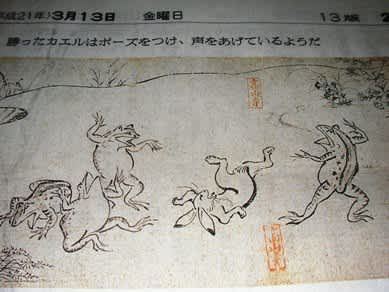 平成21年)3月13日 金曜日 13版
勝ったカエルはポーズをつけ、声をあげているようだ
高山寺